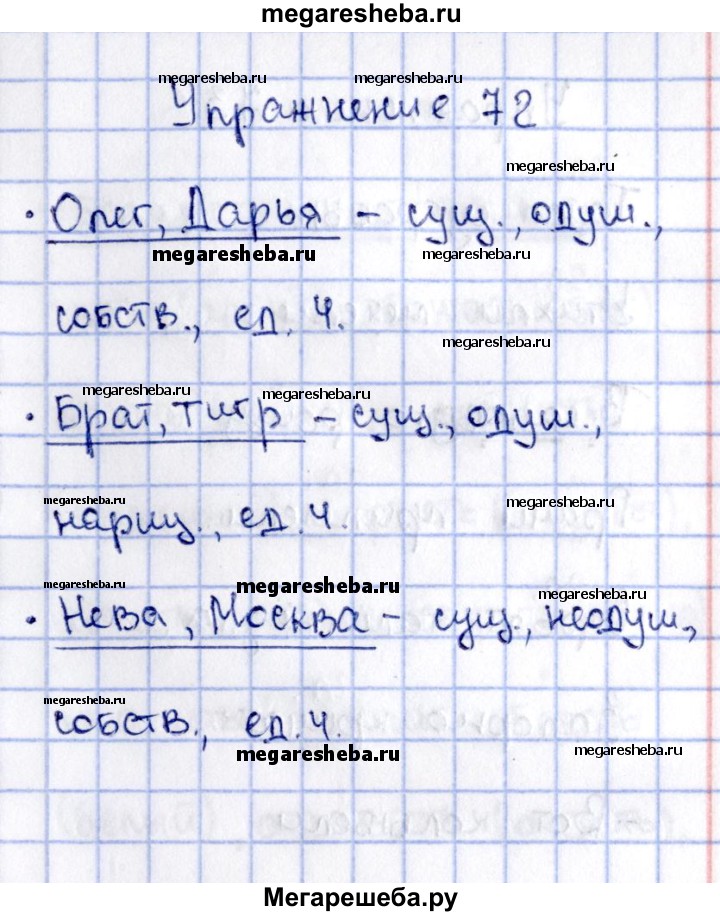 megaresheba.ru
megaresheba.ru megaresheba.ru
Упражнение 72
megaresheba.ru
· Олег, Дарья – сущ., одуш.,
megaresheba.ru megaresheba.ru
собств., ед. ч.
megaresheba.ru
megaresheba.ru megaresheba.ru
· Брат, тигр – сущ., одуш.,
megaresheba.ru megaresheba.ru
нариц., ед. ч.
megaresheba.ru megaresheba.ru megaresheba.ru
· Нева, Москва – сущ., неодуш.,
megaresheba.ru
собств., ед. ч.
megaresheba.ru megaresheba.ru
Мегарешеба.ру